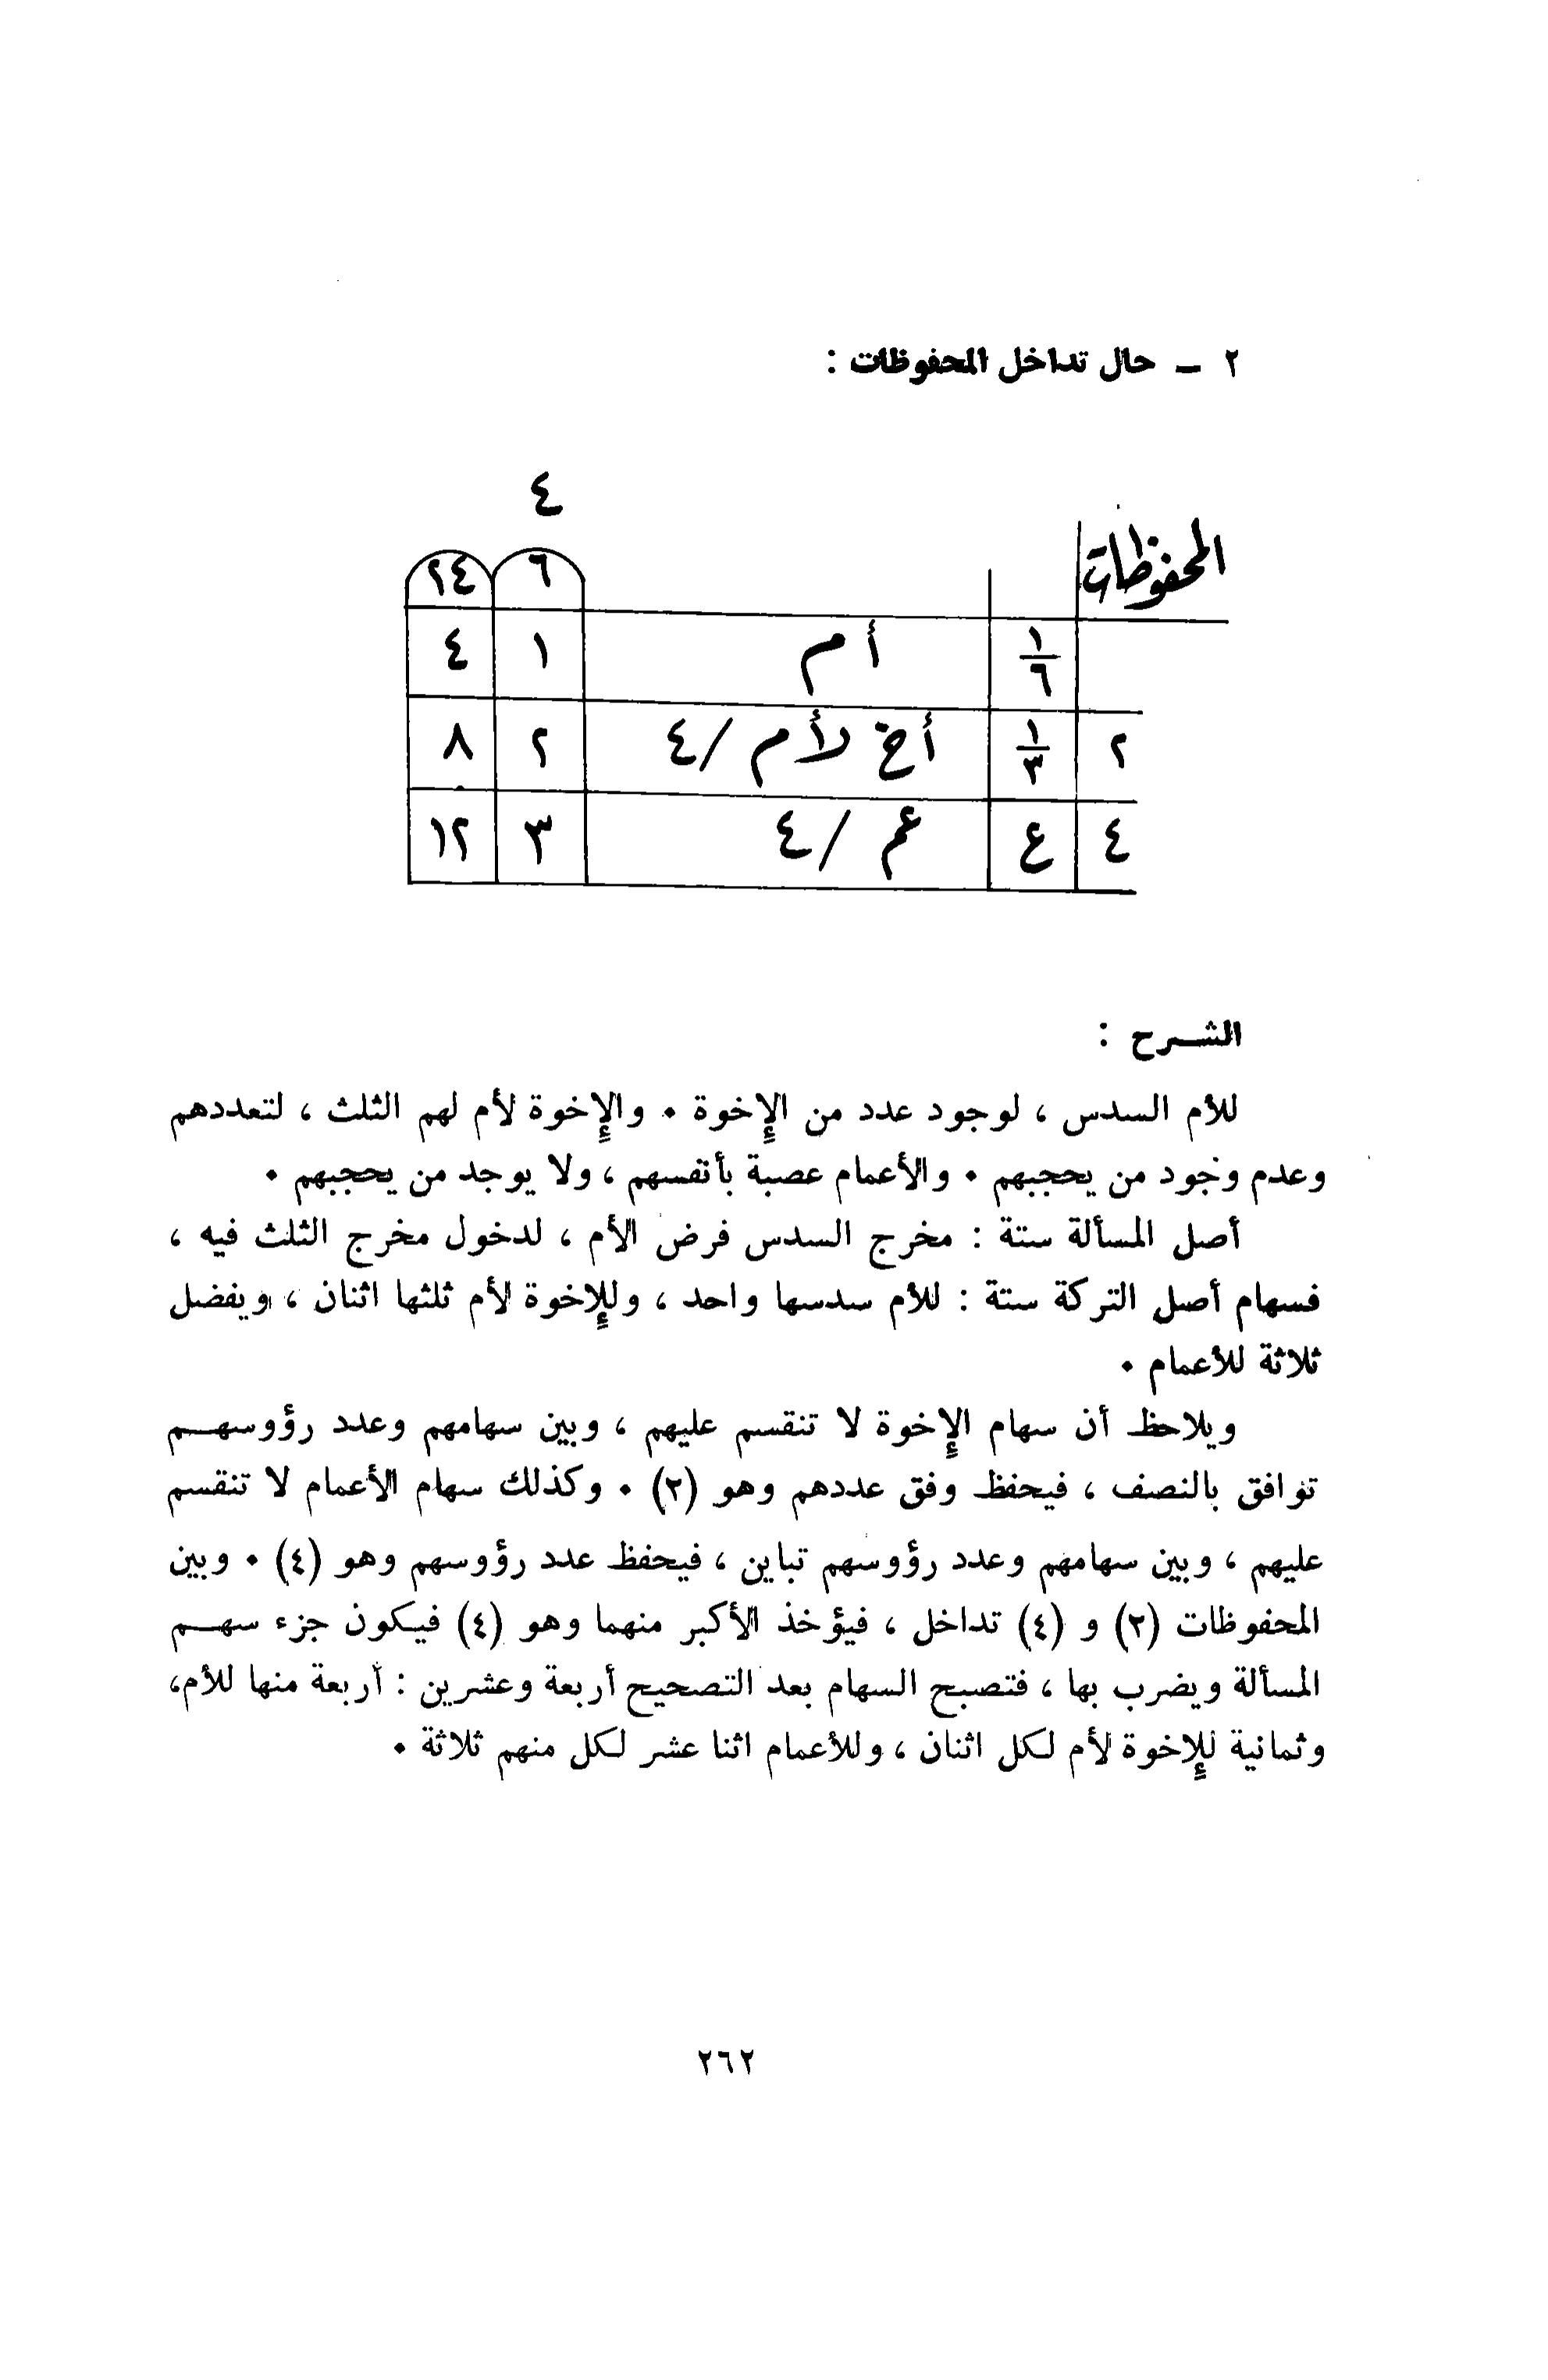 ٢ – حال تداخل المحفوظات :
٤
المحفوظات ٦ ٢٤
١/٦ أم ١ ٤
٢ ١/٣ أخ لأم /٤ ٢ ٨
٤ ع عم /٤ ٣ ١٢
الشرح :
للأم السدس ، لوجود عدد من الإخوة . والإخوة لأم لهم الثلث ، لتعددهم
وعدم وجود من يحجبهم . والأعمام عصبة بأنفسهم ، ولا يوجد من يحجبهم .
أصل المسألة ستة : مخرج السدس فرض الأم ، لدخول مخرج الثلث فيه ،
فسهام أصل التركة ستة : للأم سدسها واحد ، وللإخوة لأم ثلثها اثنان ، ويفضل
ثلاثة للأعمام .
ويلاحظ أن سهام الإخوة لا تنقسم عليهم ، وبين سهامهم وعدد رؤوسهم
توافق بالنصف ، فيحفظ وفق عددهم وهو (٢) . وكذلك سهام الأعمام لا تنقسم
عليهم ، وبين سهامهم وعدد رؤوسهم تباين ، فيحفظ عدد رؤوسهم وهو (٤) . وبين
المحفوظات (٢) و (٤) تداخل ، فيؤخذ الأكبر منهما وهو (٤) فيكون جزء سهم
المسألة ويضرب بها ، فتصبح السهام بعد التصحيح أربعة وعشرين : أربعة منها للأم،
وثمانية للإخوة لأم لكل اثنان ، وللأعمام اثنا عشر لكل منهم ثلاثة .
٢٦٢